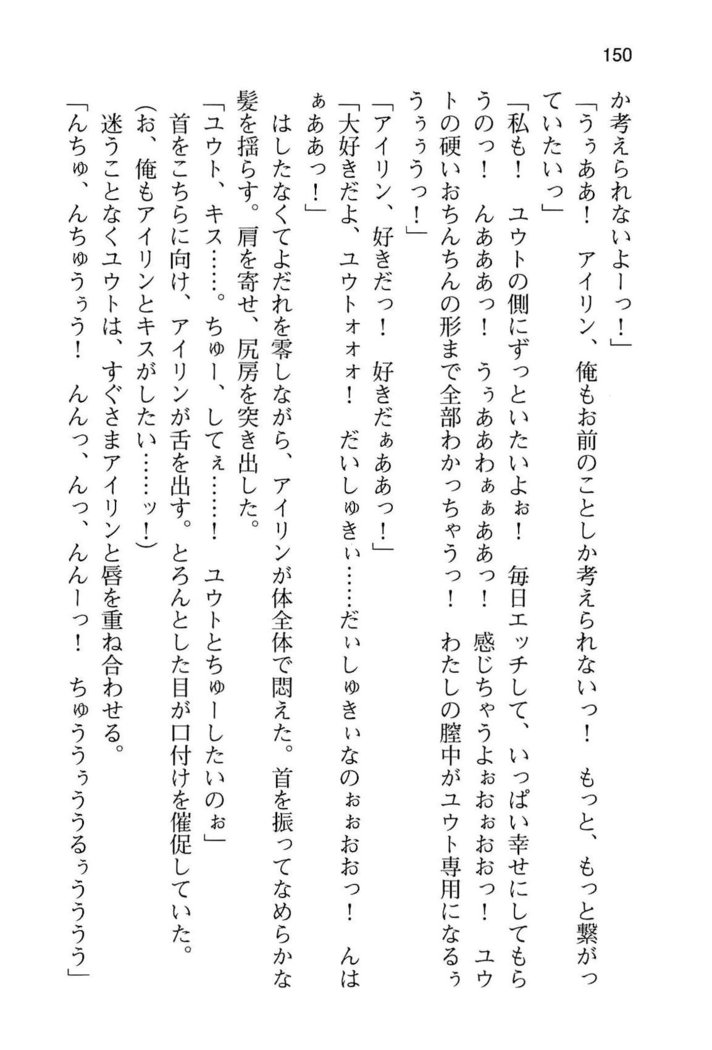 150
か考えられないよーっ!」
「うぅああ! アイリン、俺もお前のことしか考えられないっ! もっと、もっと繋がっ
ていたいっ」
「私も! ユウトの側にずっといたいよぉ! 毎日エッチして、いっぱい幸せにしてもら
うのっ! んあああっ! うぅああわぁぁああっ! 感じちゃうよぉおぉおおっ! ユウ
トの硬いおちんちんの形まで全部わかっちゃうっ! わたしの膣中がユウト専用になるぅ
うぅぅうっ!」
「アイリン、好きだっ! 好きだぁああっ!」
「大好きだよ、ユウトォォォ! だいしゅきぃ……だぃしゅきぃなのぉぉおおっ! んは
ぁああっ!」
はしたなくてよだれを零しながら、アイリンが体全体で悶えた。首を振ってなめらかな
髪を揺らす。肩を寄せ、尻房を突き出した。
「ユウト、キス……。ちゅー、してぇ……! ユウトとちゅーしたいのぉ」
首をこちらに向け、アイリンが舌を出す。とろんとした目が口付けを催促していた。
(お、俺もアイリンとキスがしたい……ッ!)
迷うことなくユウトは、すぐさまアイリンと唇を重ね合わせる。
「んちゅ、んちゅうぅう! んんっ、んっ、んんーっ! ちゅううぅううるぅうううう」